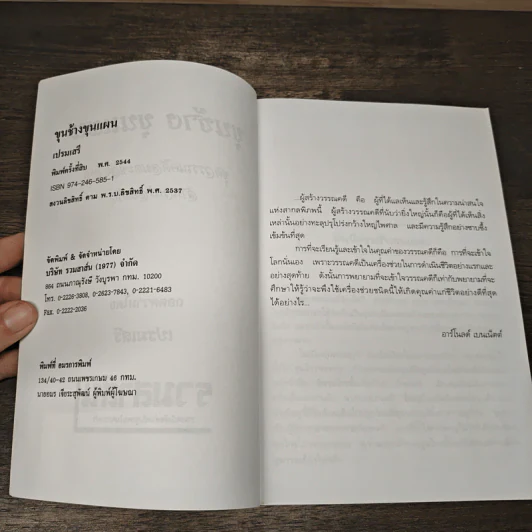 ขุนช้างขุนแผน
เปรมเสรี
พิมพ์ครั้งที่สิบ พ.ศ. 2544
ISBN 974-246-585-1
สงวนลิขสิทธิ์ ตาม พ.ร.บ.ลิขสิทธิ์ พ.ศ. 2537
จัดพิมพ์ & จัดจำหน่ายโดย
บริษัท รวมสาส์น (1977) จำกัด
864 ถนนภาณุรังษี วังบูรพา กทม. 10200
โทร. 0-2226-3808, 0-2623-7843, 0-2221-6483
FAX. 0-2222-2036
พิมพ์ที่ อมรการพิมพ์
134/40-42 ถนนเพชรเกษม 46 กทม.
นายอมร เจียระสุพัฒน์ ผู้พิมพ์ผู้โฆษณา
...ผู้สร้างวรรณคดี คือ ผู้ที่ได้แลเห็นและรู้สึกในความน่าสนใจ
แห่งสากลพิภพนี้ ผู้สร้างวรรณคดีที่นับว่ายิ่งใหญ่นั้นก็คือผู้ที่ได้เห็นสิ่ง
เหล่านั้นอย่างทะลุปรุโปร่งกว้างใหญ่ไพศาล และมีความรู้สึกอย่างซาบซึ้ง
เข้มข้นที่สุด
การที่จะเรียนรู้และเข้าใจในคุณค่าของวรรณคดีก็คือ การที่จะเข้าใจ
โลกนั่นเอง เพราะวรรณคดีเป็นเครื่องช่วยในการดำเนินชีวิตอย่างแรกและ
อย่างสุดท้าย ดังนั้นการพยายามที่จะเข้าใจวรรณคดีก็เท่ากับพยายามที่จะ
ศึกษาให้รู้ว่าจะพึ่งใช้เครื่องช่วยชนิดนี้ให้เกิดคุณค่าแก่ชีวิตอย่างดีที่สุด
ได้อย่างไร...
อาร์โนลด์ เบนเน็ตต์